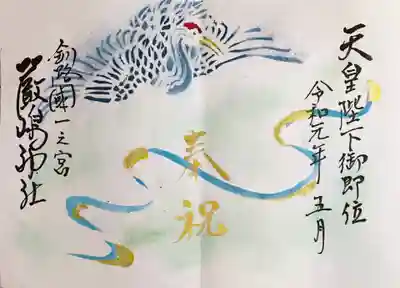 天皇陛下御即位
令和元年五月
奉祝
釧路國一之宮
嚴嶋神社